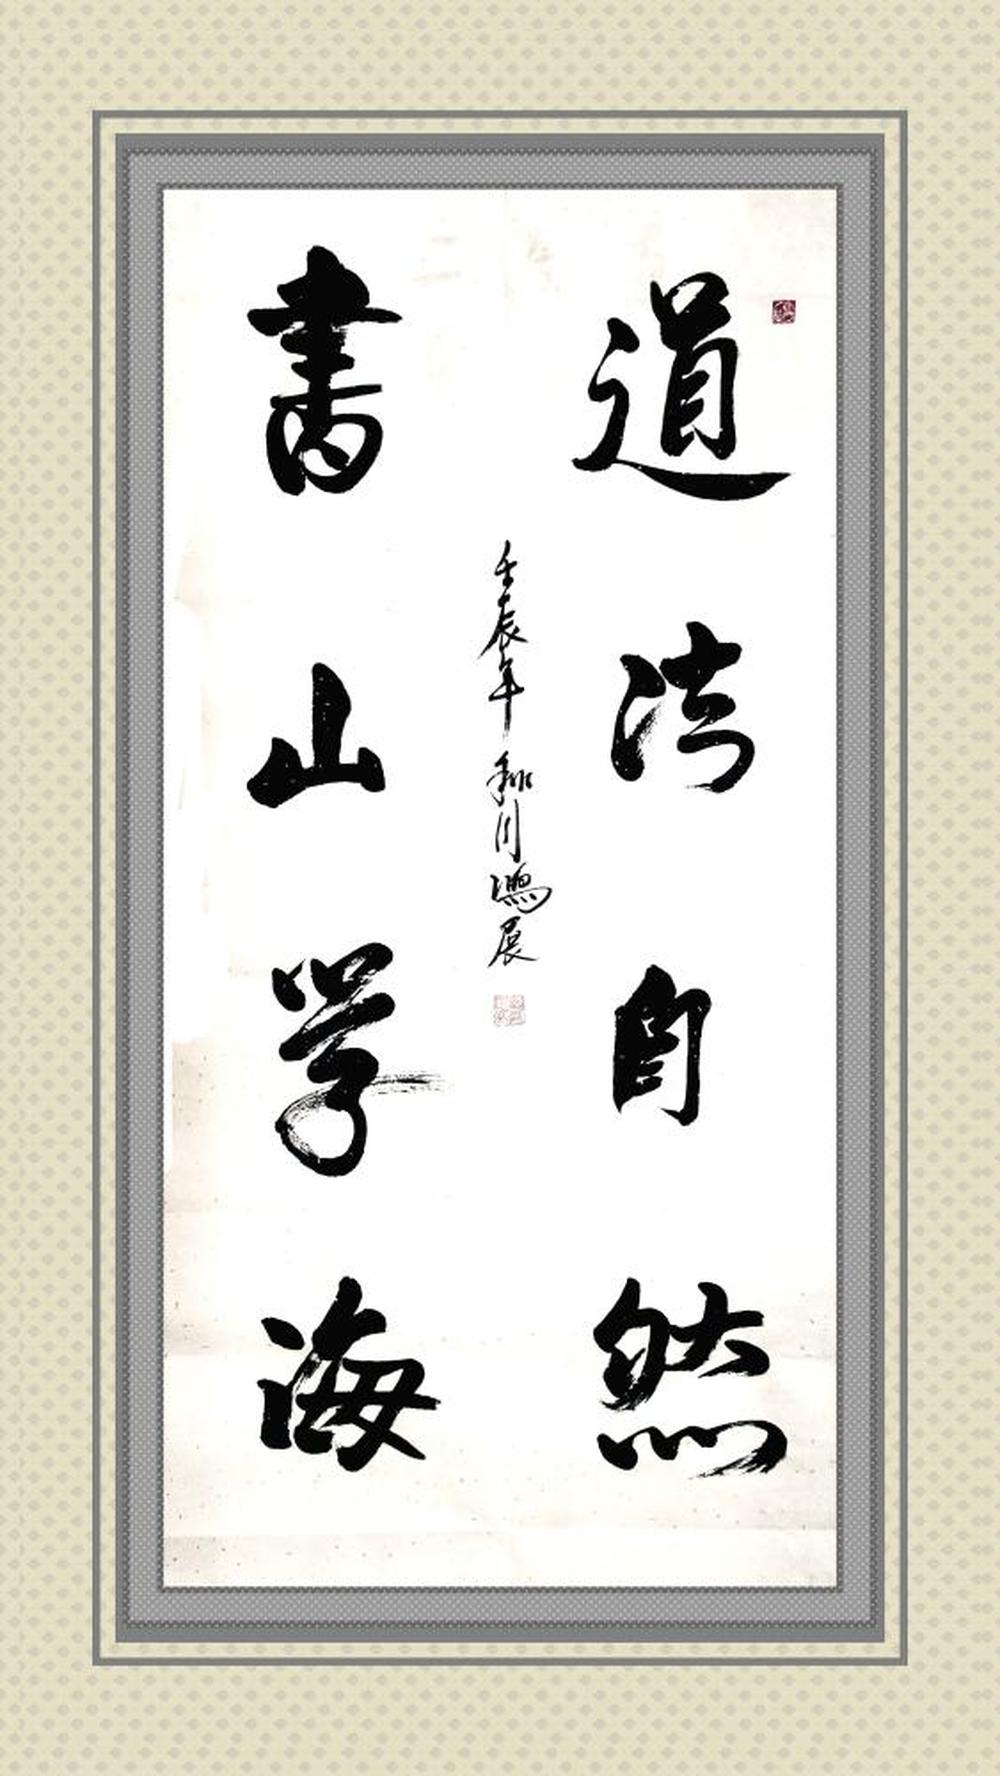 道法自然
書山學海
壬辰年 秋月鴻展